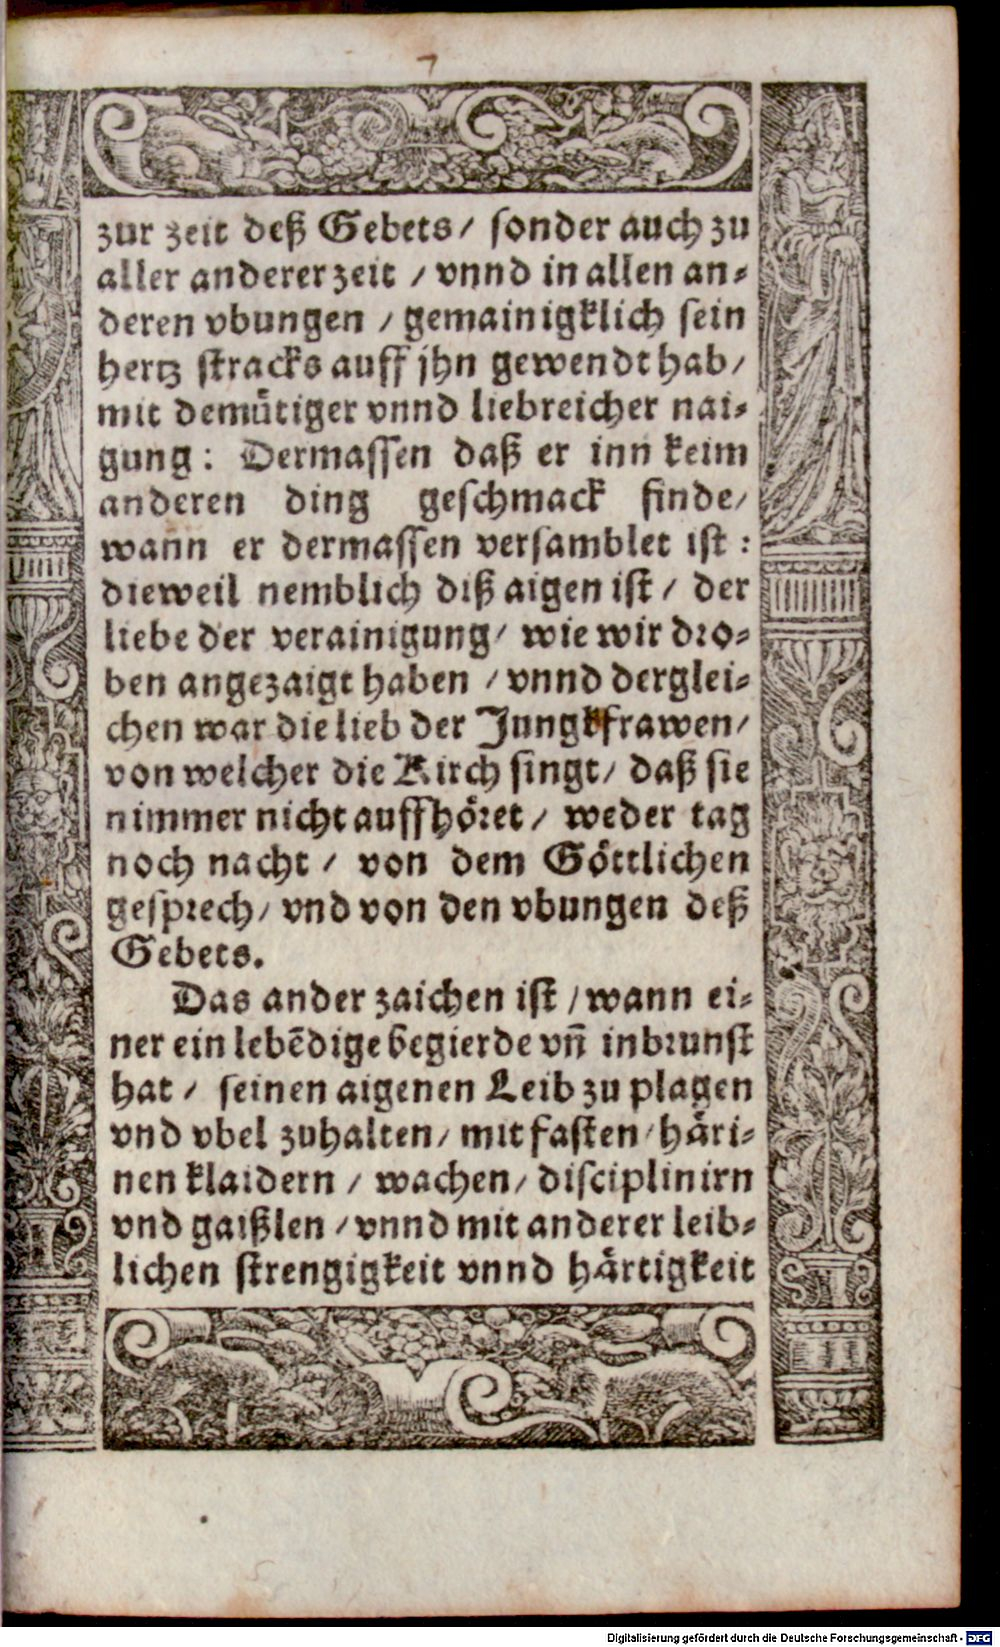 7
zur zeit deß Gebets/ sonder auch zu
aller anderer zeit / vnnd in allen an-
deren vbungen / gemainigklich sein
hertz stracks auff jhn gewendt hab/
mit demütiger vnnd liebreicher nai-
gung: Dermassen daß er inn keim
anderen ding geschmack finde/
wann er dermassen versamblet ist:
dieweil nemblich diß aigen ist / der
liebe der verainigung/ wie wir dro-
ben angezaigt haben / vnnd derglei-
chen war die lieb der Jungkfrawen/
von welcher die Kirch singt/ daß sie
nimmer nicht auffhöret / weder tag
noch nacht / von dem Göttlichen
gesprech/ vnd von den vbungen deß
Gebets.
Das ander zaichen ist / wann ei-
ner ein lebēdige begierde vn̄ inbrunst
hat / seinen aigenen Leib zu plagen
vnd vbel zuhalten/ mit fasten/ häri-
nen klaidern / wachen/ disciplinirn
vnd gaißlen / vnnd mit anderer leib-
lichen strengigkeit vnnd härtigkeit
Digitalisierung gefördert durch die Deutsche Forschungsgemeinschaft - DFG